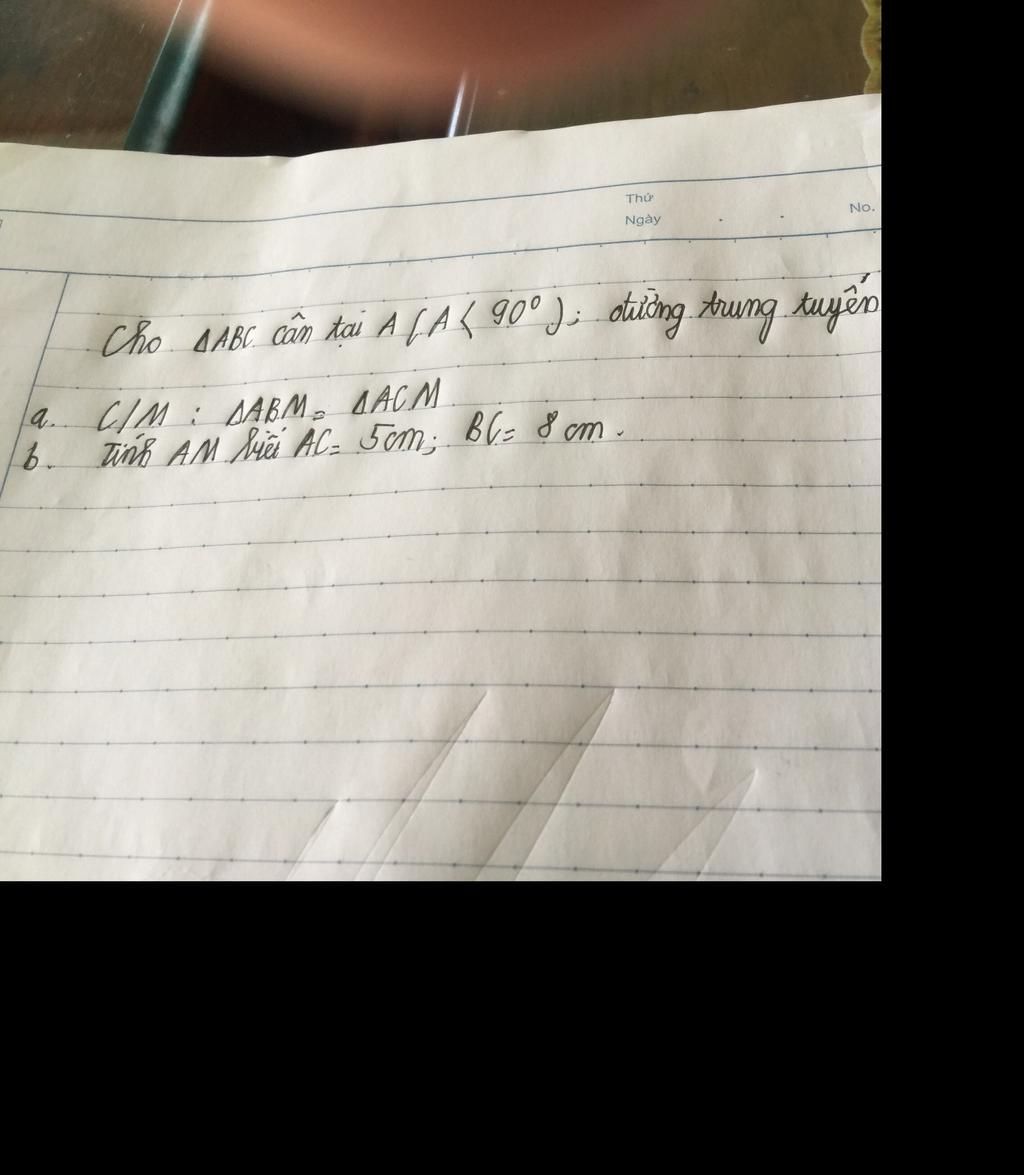 Thứ
Ngày
No.
Cho ΔABC cân tại A (A < 90°); đường trung tuyến
a. C/M : ΔABM = ΔACM
b. Tính AM biết AC = 5cm; BC = 8 cm.